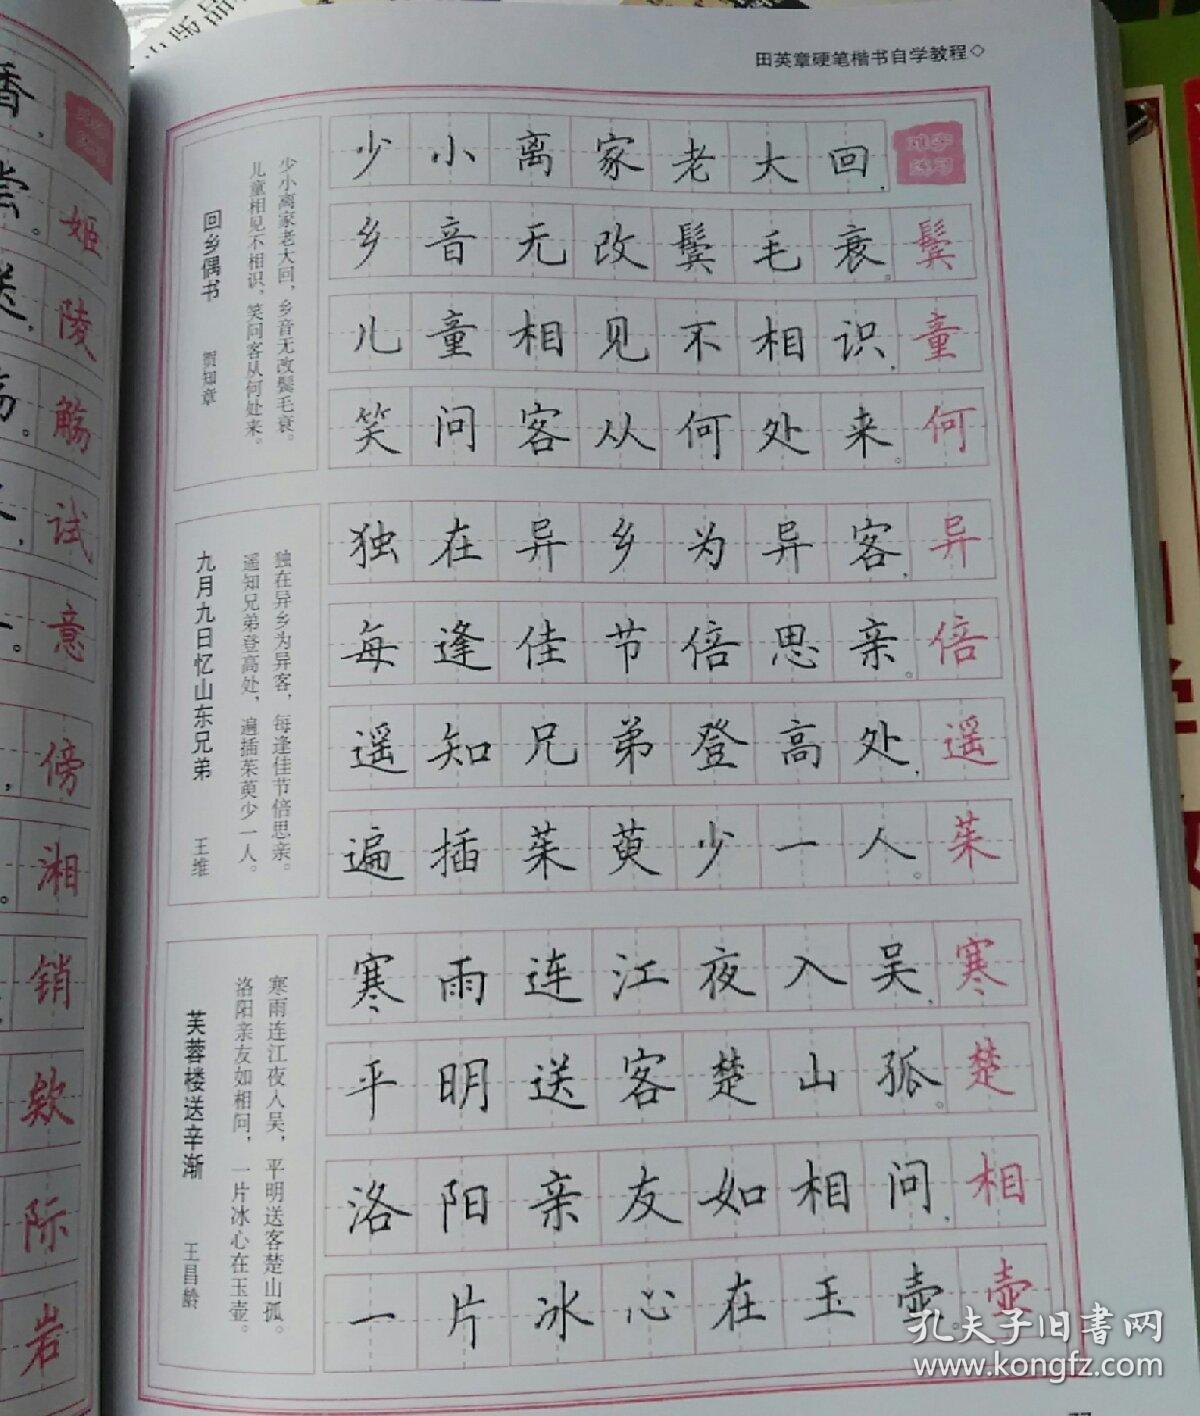 田英章硬笔楷书自学教程◇
难字
练习
少小离家老大回，
乡音无改鬓毛衰。鬓
儿童相见不相识，童
笑问客从何处来。何
回乡偶书 贺知章
少小离家老大回，乡音无改鬓毛衰。
儿童相见不相识，笑问客从何处来。
独在异乡为异客，异
每逢佳节倍思亲。倍
遥知兄弟登高处，遥
遍插茱萸少一人。茱
九月九日忆山东兄弟 王维
独在异乡为异客，每逢佳节倍思亲。
遥知兄弟登高处，遍插茱萸少一人。
寒雨连江夜入吴，寒
平明送客楚山孤。楚
洛阳亲友如相问，相
一片冰心在玉壶。壶
芙蓉楼送辛渐 王昌龄
寒雨连江夜入吴，平明送客楚山孤。
洛阳亲友如相问，一片冰心在玉壶。
香，
尝。姬
送，陵
觞
试
意
傍
湘
销
欸
际
岩
孔夫子旧書网
www.kongfz.com